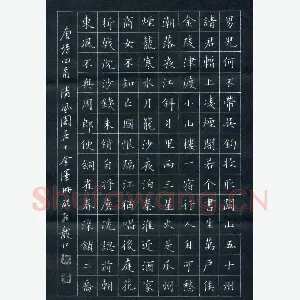 男兒何不帶吳鉤收取關山五十州
請君暫上凌煙閣若個書生萬戶侯
金陵津渡小山樓一宿行人自可愁
潮落夜江斜月里兩三星火是瓜州
煙籠寒水月籠沙夜泊秦淮近酒家
商女不知亡國恨隔江猶唱後庭花
折戟沉沙鐵未銷自將磨洗認前朝
東風不與周郎便銅雀春深鎖二喬
唐詩四首 清風閣居士